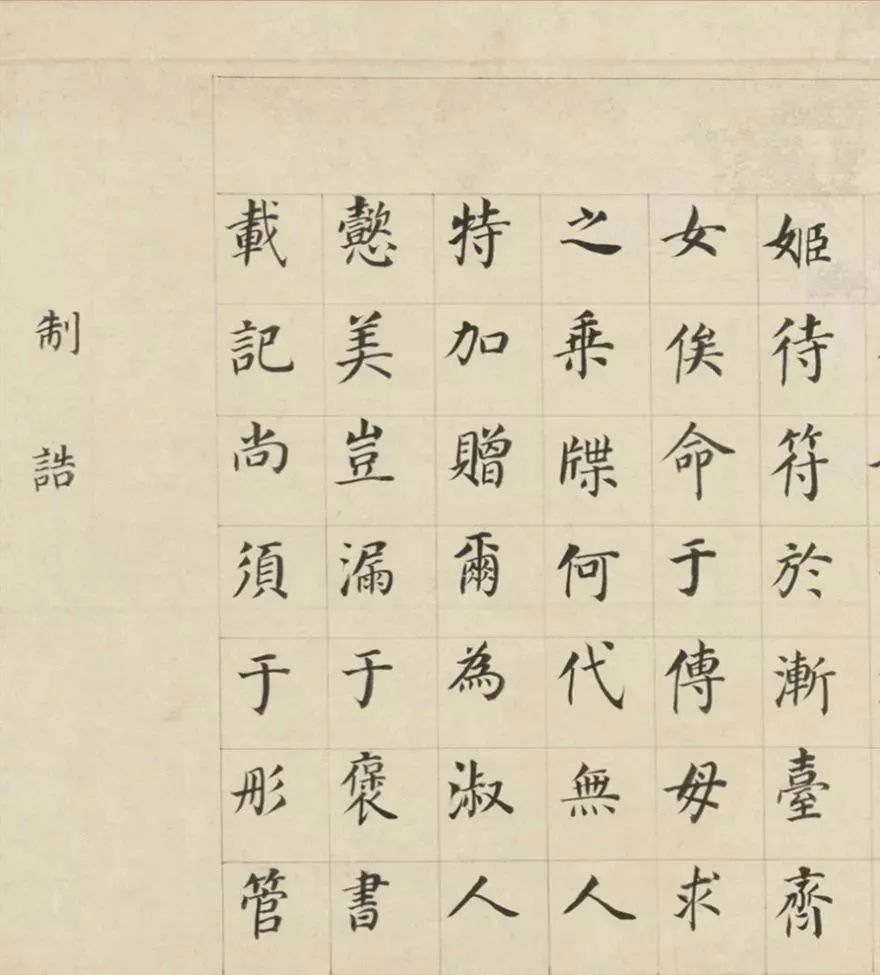 姬待符於漸臺齊
女俟命于傅母求
之乗牒何代無人
特加贈爾為淑人
懿美豈漏于褒書
載記尚須于彤管
制誥